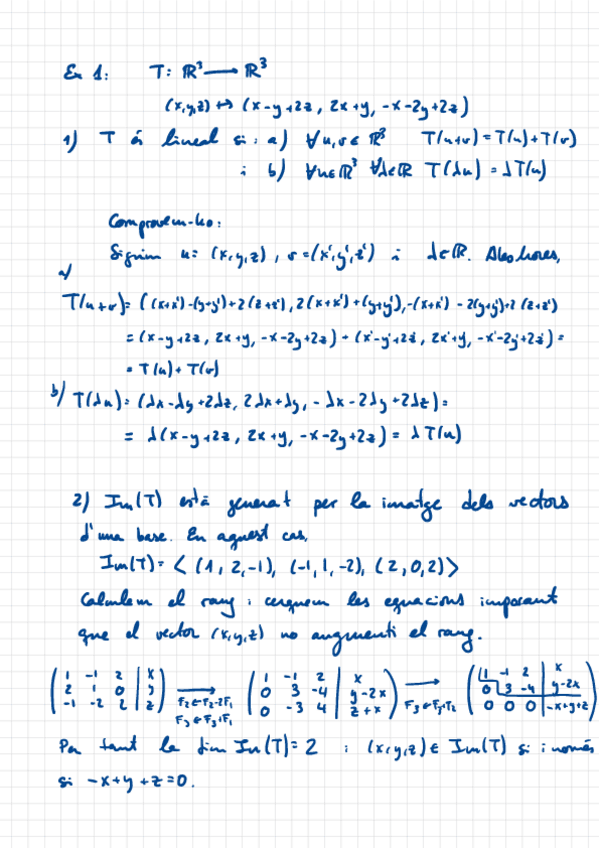 Ex 1: T: ℝ³ ⟶ ℝ³
(x,y,z) ↦ (x-y+2z, 2x+y, -x-2y+2z)
1) T és lineal si: a) ∀u,v∈ℝ³ T(u+v)=T(u)+T(v)
i b) ∀u∈ℝ³ ∀λ∈ℝ T(λu)=λT(u)
Comprovem-ho:
Siguin u=(x,y,z), v=(x',y',z') i λ∈ℝ. Aleshores,
a)
T(u+v)=((x+x')-(y+y')+2(z+z'), 2(x+x')+(y+y'), -(x+x')-2(y+y')+2(z+z'))
=(x-y+2z, 2x+y, -x-2y+2z)+(x'-y'+2z', 2x'+y', -x'-2y'+2z')=
= T(u)+T(v)
b) T(λu)=(λx-λy+2λz, 2λx+λy, -λx-2λy+2λz)=
= λ(x-y+2z, 2x+y, -x-2y+2z)= λT(u)
2) Im(T) està generat per la imatge dels vectors
d'una base. En aquest cas,
Im(T)= < (1,2,-1), (-1,1,-2), (2,0,2)>
Calculem el rang i cerquem les equacions imposant
que el vector (x,y,z) no augmenti el rang.
( 1 -1 2 | x ) ( 1 -1 2 | x ) ( 1 -1 2 | x )
( 2 1 0 | y ) ⟶ ( 0 3 -4 | y-2x ) ⟶ ( 0 3 -4 | y-2x )
( -1 -2 2 | z ) F₂←F₂-2F₁ ( 0 -3 4 | z+x ) F₃←F₃+F₂ ( 0 0 0 | -x+y+z )
F₃←F₃+F₁
Per tant la dim Im(T)=2 i (x,y,z)∈ Im(T) si i només
si -x+y+z=0.